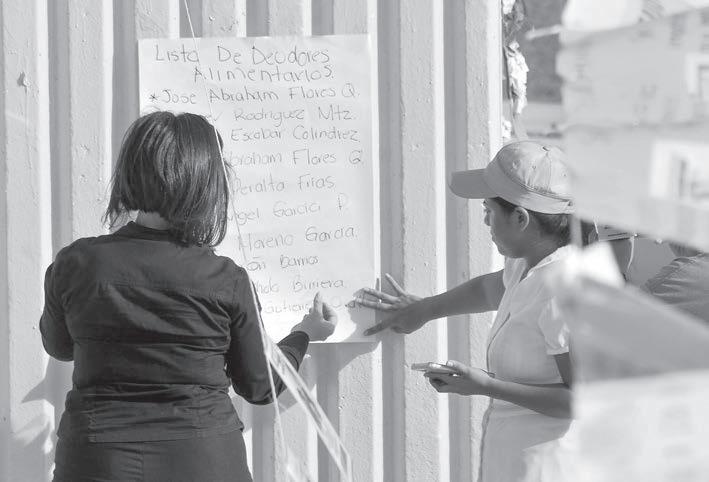 Lista De Deudores
Alimentarios.
* Jose Abraham Flores Q.
Rodriguez Mtz.
Escobar Colindrez
Abraham Flores Q
Peralta Frias
Garcia P.
Moreno Garcia.
Barros